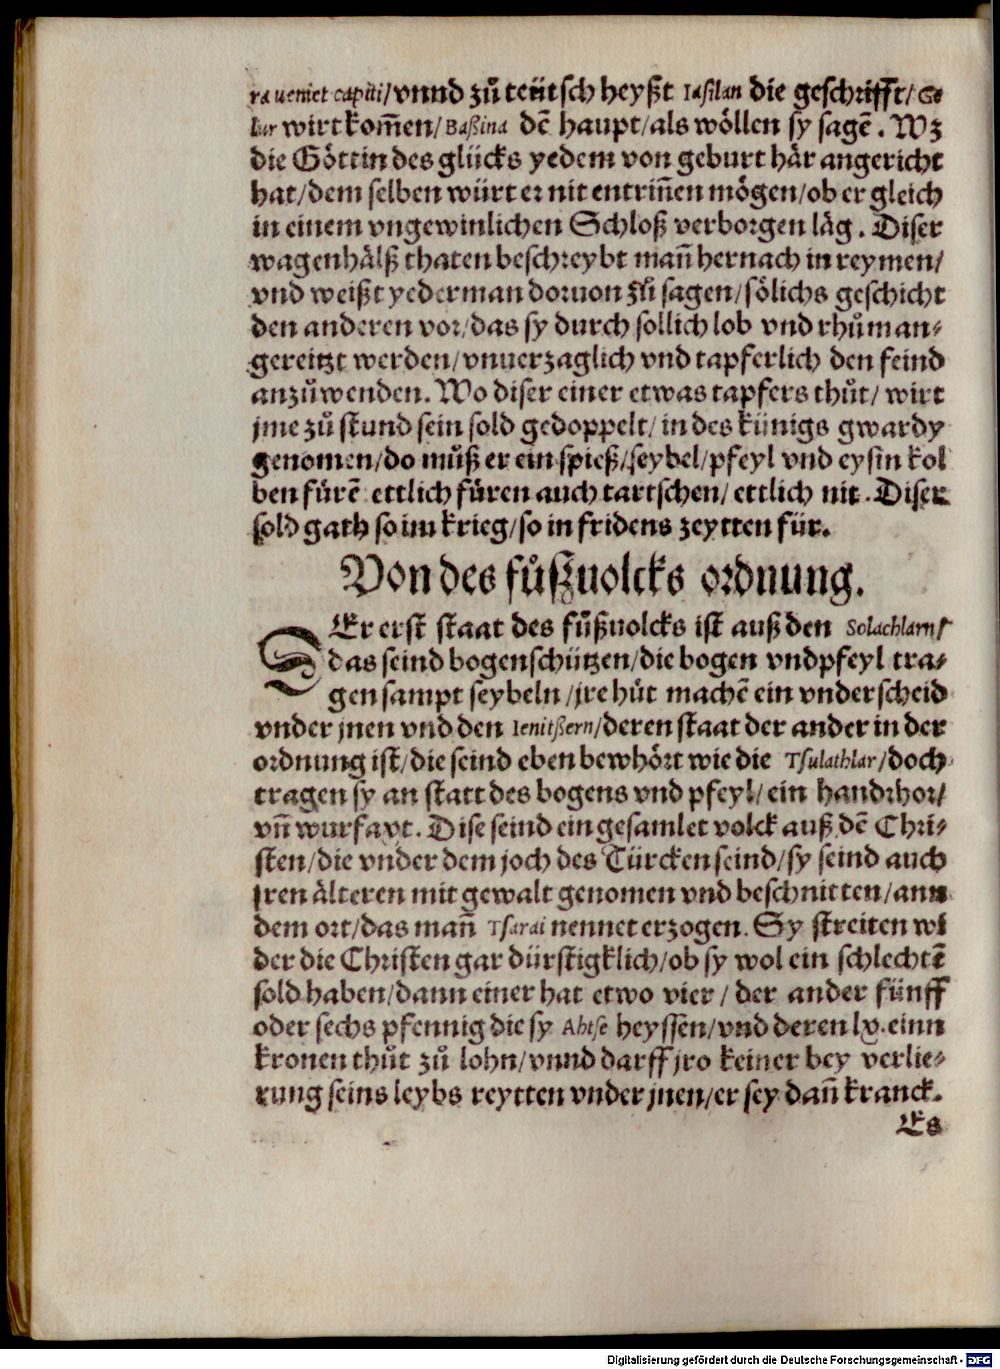 ra ueniet capiti/vnnd zů teütsch heyßt Iasilan die geschrifft/Ge
lur wirt kom̃en/Baßina dẽ haupt/als wöllen sy sagẽ. Wz
die Göttin des glücks yedem von geburt här angericht
hat/dem selben würt er nit entriñen mögen/ob er gleich
in einem vngewinlichen Schloß verborgen läg. Diser
wagenhälß thaten beschreybt mañ hernach in reymen/
vnd weißt yederman doruon zů sagen/sölichs geschicht
den anderen vor/das sy durch sollich lob vnd rhům an-
gereitzt werden/vnuerzaglich vnd tapferlich den feind
anzůwenden. Wo diser einer etwas tapfers thůt/ wirt
jme zů stund sein sold gedoppelt/in des künigs gwardy
genomen/do můß er ein spieß/seybel/pfeyl vnd eysin kol
ben fürẽ ettlich füren auch tartschen/ettlich nit. Diser
sold gath so im krieg/so in fridens zeytten für.
Von des fůßuolcks ordnung.
DEr erst staat des fůßuolcks ist auß den Solachlarn/
das seind bogenschützen/die bogen vnd pfeyl tra-
gen sampt seybeln/jre hůt machẽ ein vnderscheid
vnder jnen vnd den Ienitßern/deren staat der ander in der
ordnung ist/die seind eben bewhört wie die Tsulathlar/doch
tragen sy an statt des bogens vnd pfeyl/ein handrhor/
vñ wurfaxt. Dise seind ein gesamlet volck auß dẽ Chri-
sten/die vnder dem joch des Türcken seind/sy seind auch
jren älteren mit gewalt genomen vnd beschnitten/ann
dem ort/das mañ Tsarai nennet erzogen. Sy streiten wi
der die Christen gar dürstigklich/ob sy wol ein schlechtẽ
sold haben/dann einer hat etwo vier/ der ander fünff
oder sechs pfennig die sy Ahtse heyssen/vnd deren lx. einn
kronen thůt zů lohn/vnnd darff jro keiner bey verlie-
rung seins leybs reytten vnder jnen/er sey dañ kranck.
Es
Digitalisierung gefördert durch die Deutsche Forschungsgemeinschaft - DFG